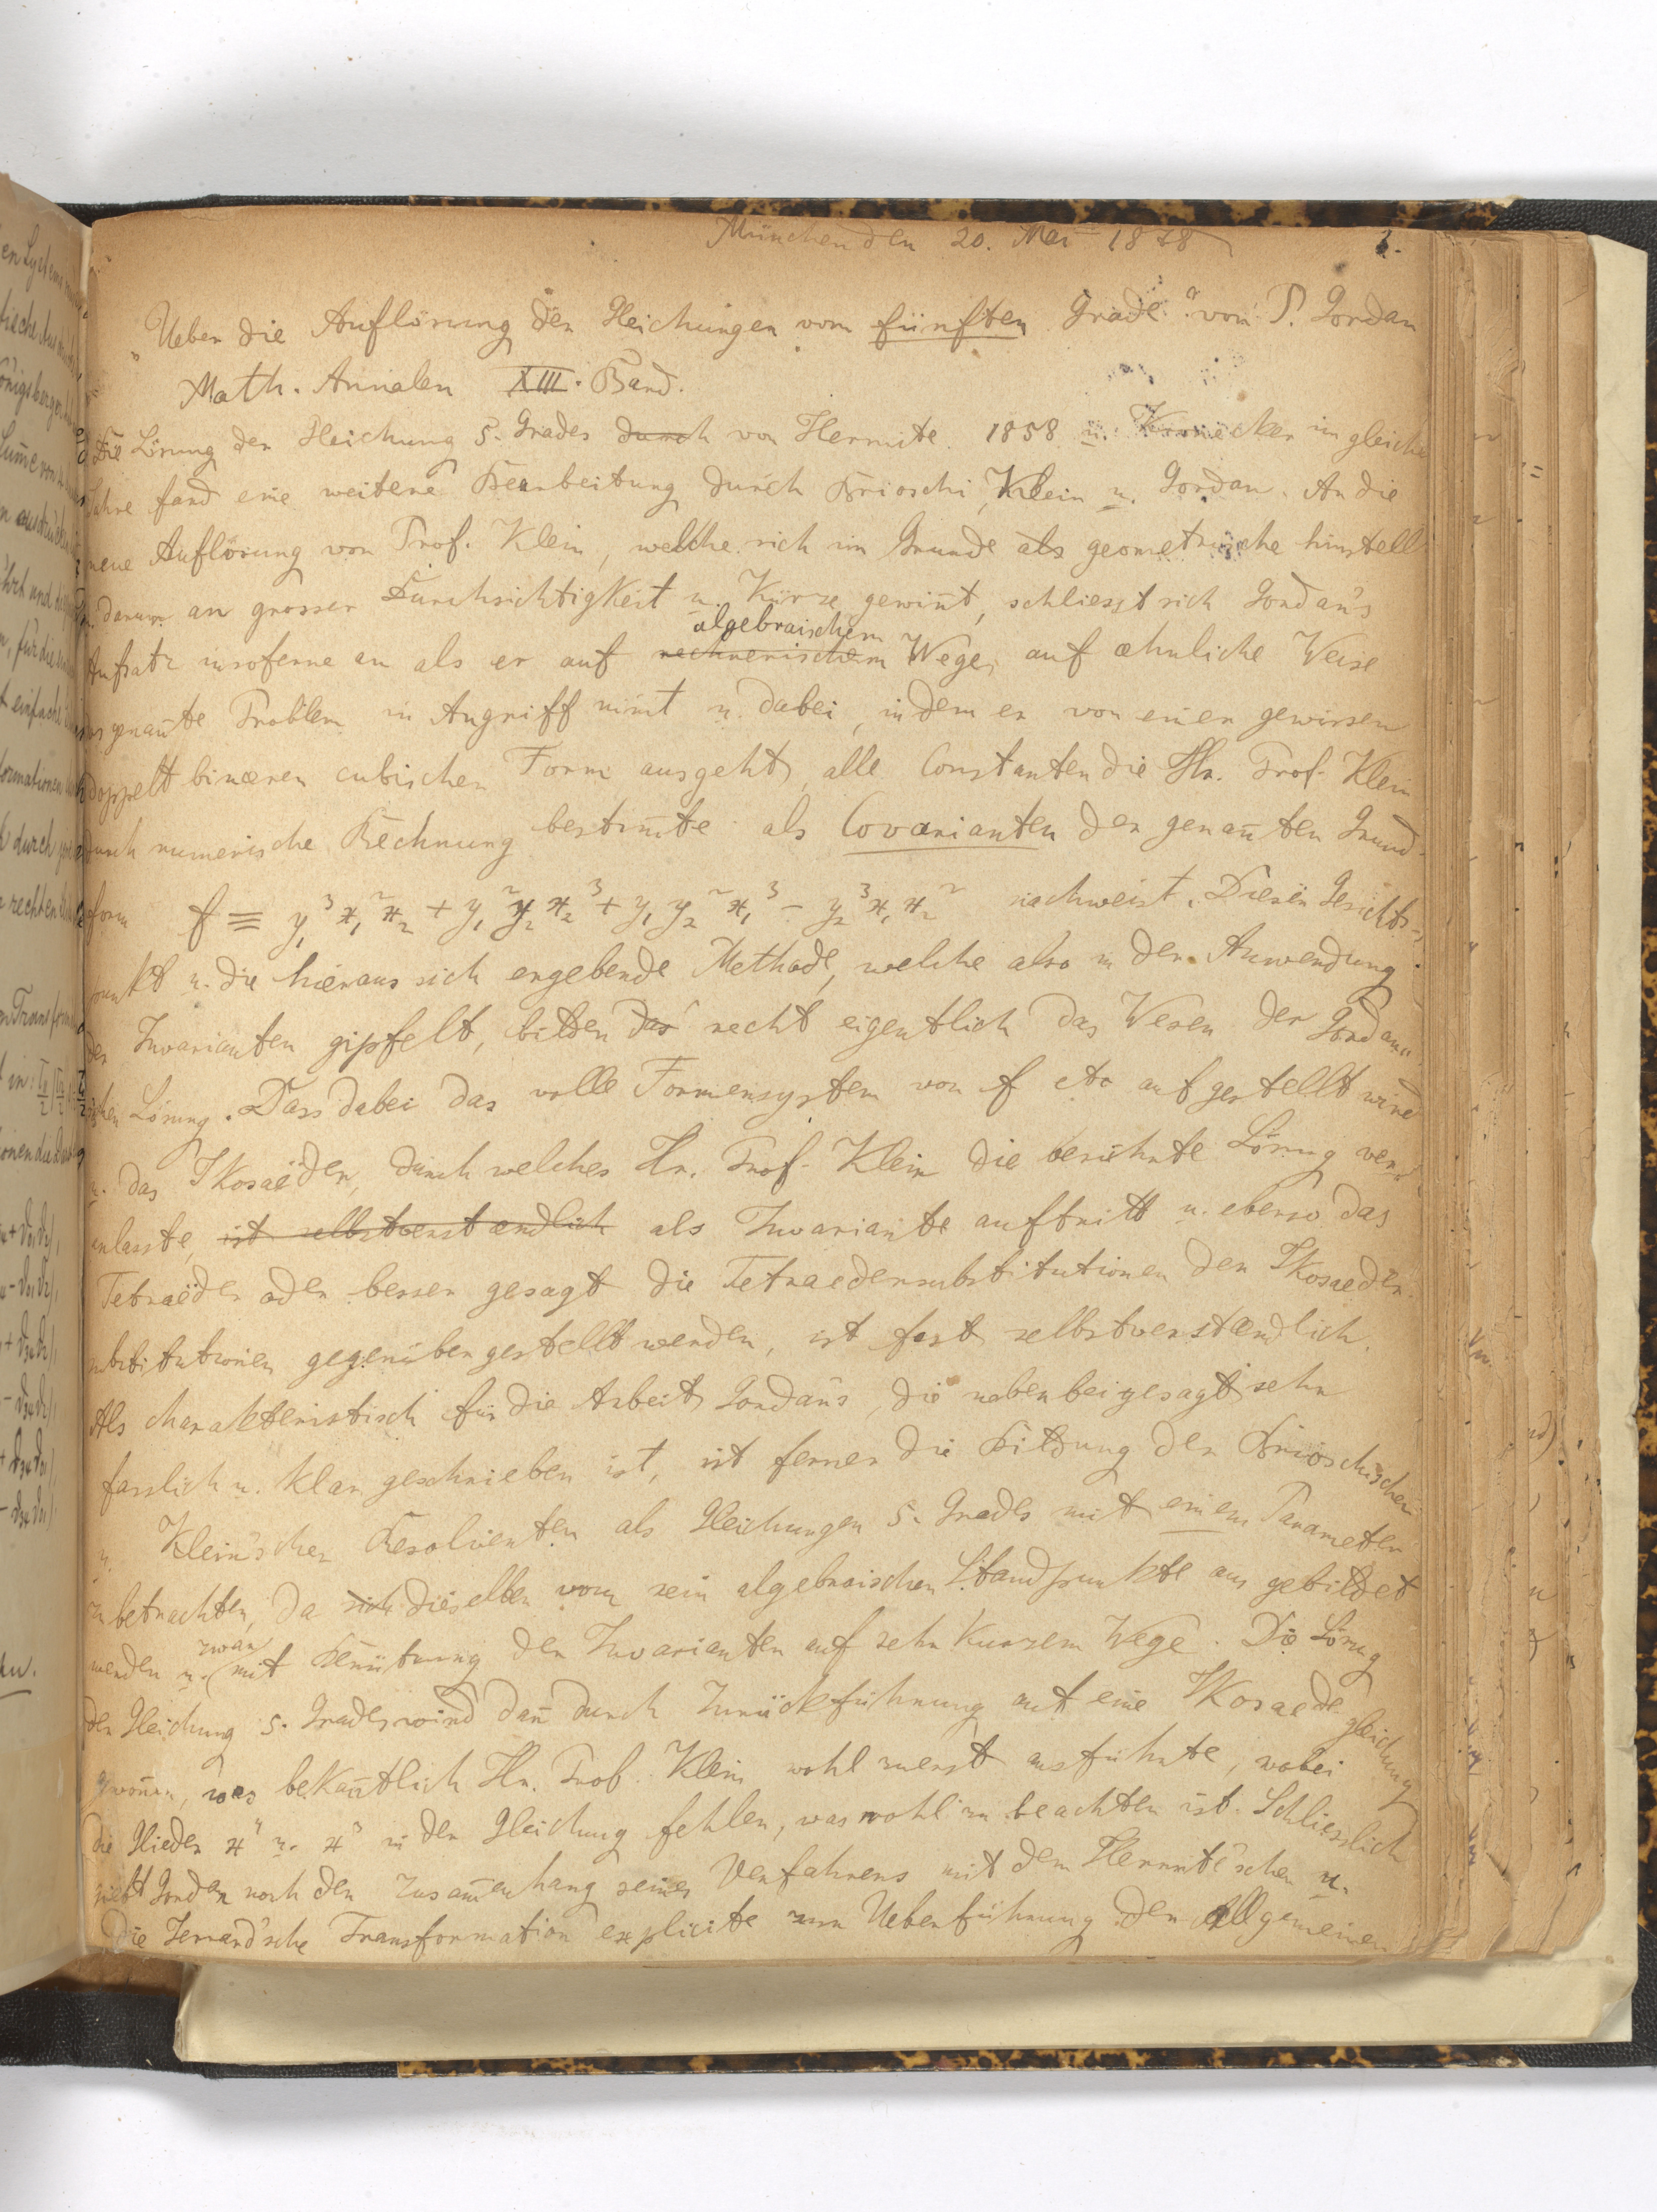 München den 20. Mai 1878
1.
„Ueber die Auflösung der Gleichungen vom fünften Grade“ von P. Gordan
Math. Annalen XIII. Band.
Die Lösung der Gleichung 5. Grades durch von Hermite 1858 u. Kronecker im gleichen
Jahre fand eine weitere Bearbeitung durch Brioschi, Klein u. Gordan. An die
neue Auflösung von Prof. Klein, welche sich im Grunde als geometrische hinstellt
u. darum an grosser Durchsichtigkeit u. Kürze gewinnt, schliesst sich Gordan's
algebraischem
Aufsatz insoferne an als er auf rechnerischem Wege, auf æhnliche Weise
das genannte Problem in Angriff nimt u. dabei, indem er von einer gewissen
doppelt binæren cubischen Form ausgeht, alle Constanten die Hr. Prof. Klein
durch numerische Rechnung bestimte als Covarianten der genanten Grund-
form f ≡ y₁³x₁²x₂ + y₁²y₂x₂³ + y₁y₂²x₁³ - y₂³x₁x₂² nachweist. Diesen Gesichts-
punkt u. die hieraus sich ergebende Methode, welche also in der Anwendung
der Invarianten gipfelt, bilden das recht eigentlich das Wesen der Gordan'-
schen Lösung. Dass dabei das volle Formensystem von f etc aufgestellt wird
u. das Ikosaëder, durch welches Hr. Prof. Klein die berühmte Lösung ver-
anlasste, ist selbstverstændlich als Invariante auftritt u. ebenso das
Tetraëder oder besser gesagt die Tetraedersubstitutionen den Ikosaeder-
substitutionen gegenüber gestellt werden, ist fast selbstverstændlich.
Als charakteristisch für die Arbeit Gordan's, die nebenbei gesagt sehr
fasslich u. klar geschrieben ist, ist ferner die Bildung der Brioschischen
u. Klein'schen Resolventen als Gleichungen 5. Grades mit einem Parameter
zu betrachten, da sich dieselben vom rein algebraischen Standpunkte aus gebildet
zwar
werden u. mit Benützung der Invarianten auf sehr kurzem Wege. Die Lösung
der Gleichung 5. Grades wird dañ durch Zurückführung auf eine Ikosaedergleichung
gewonnen, was bekañtlich Hr. Prof. Klein wohl zuerst ausführte, wobei
die Glieder x⁴ u. x³ in der Gleichung fehlen, was wohl zu beachten ist. Schliesslich
giebt Gordan noch den Zusam̄enhang seines Verfahrens mit dem Hermite'schen u.
die Jerrard'sche Transformation explicite zur Ueberführung der allgemeinen